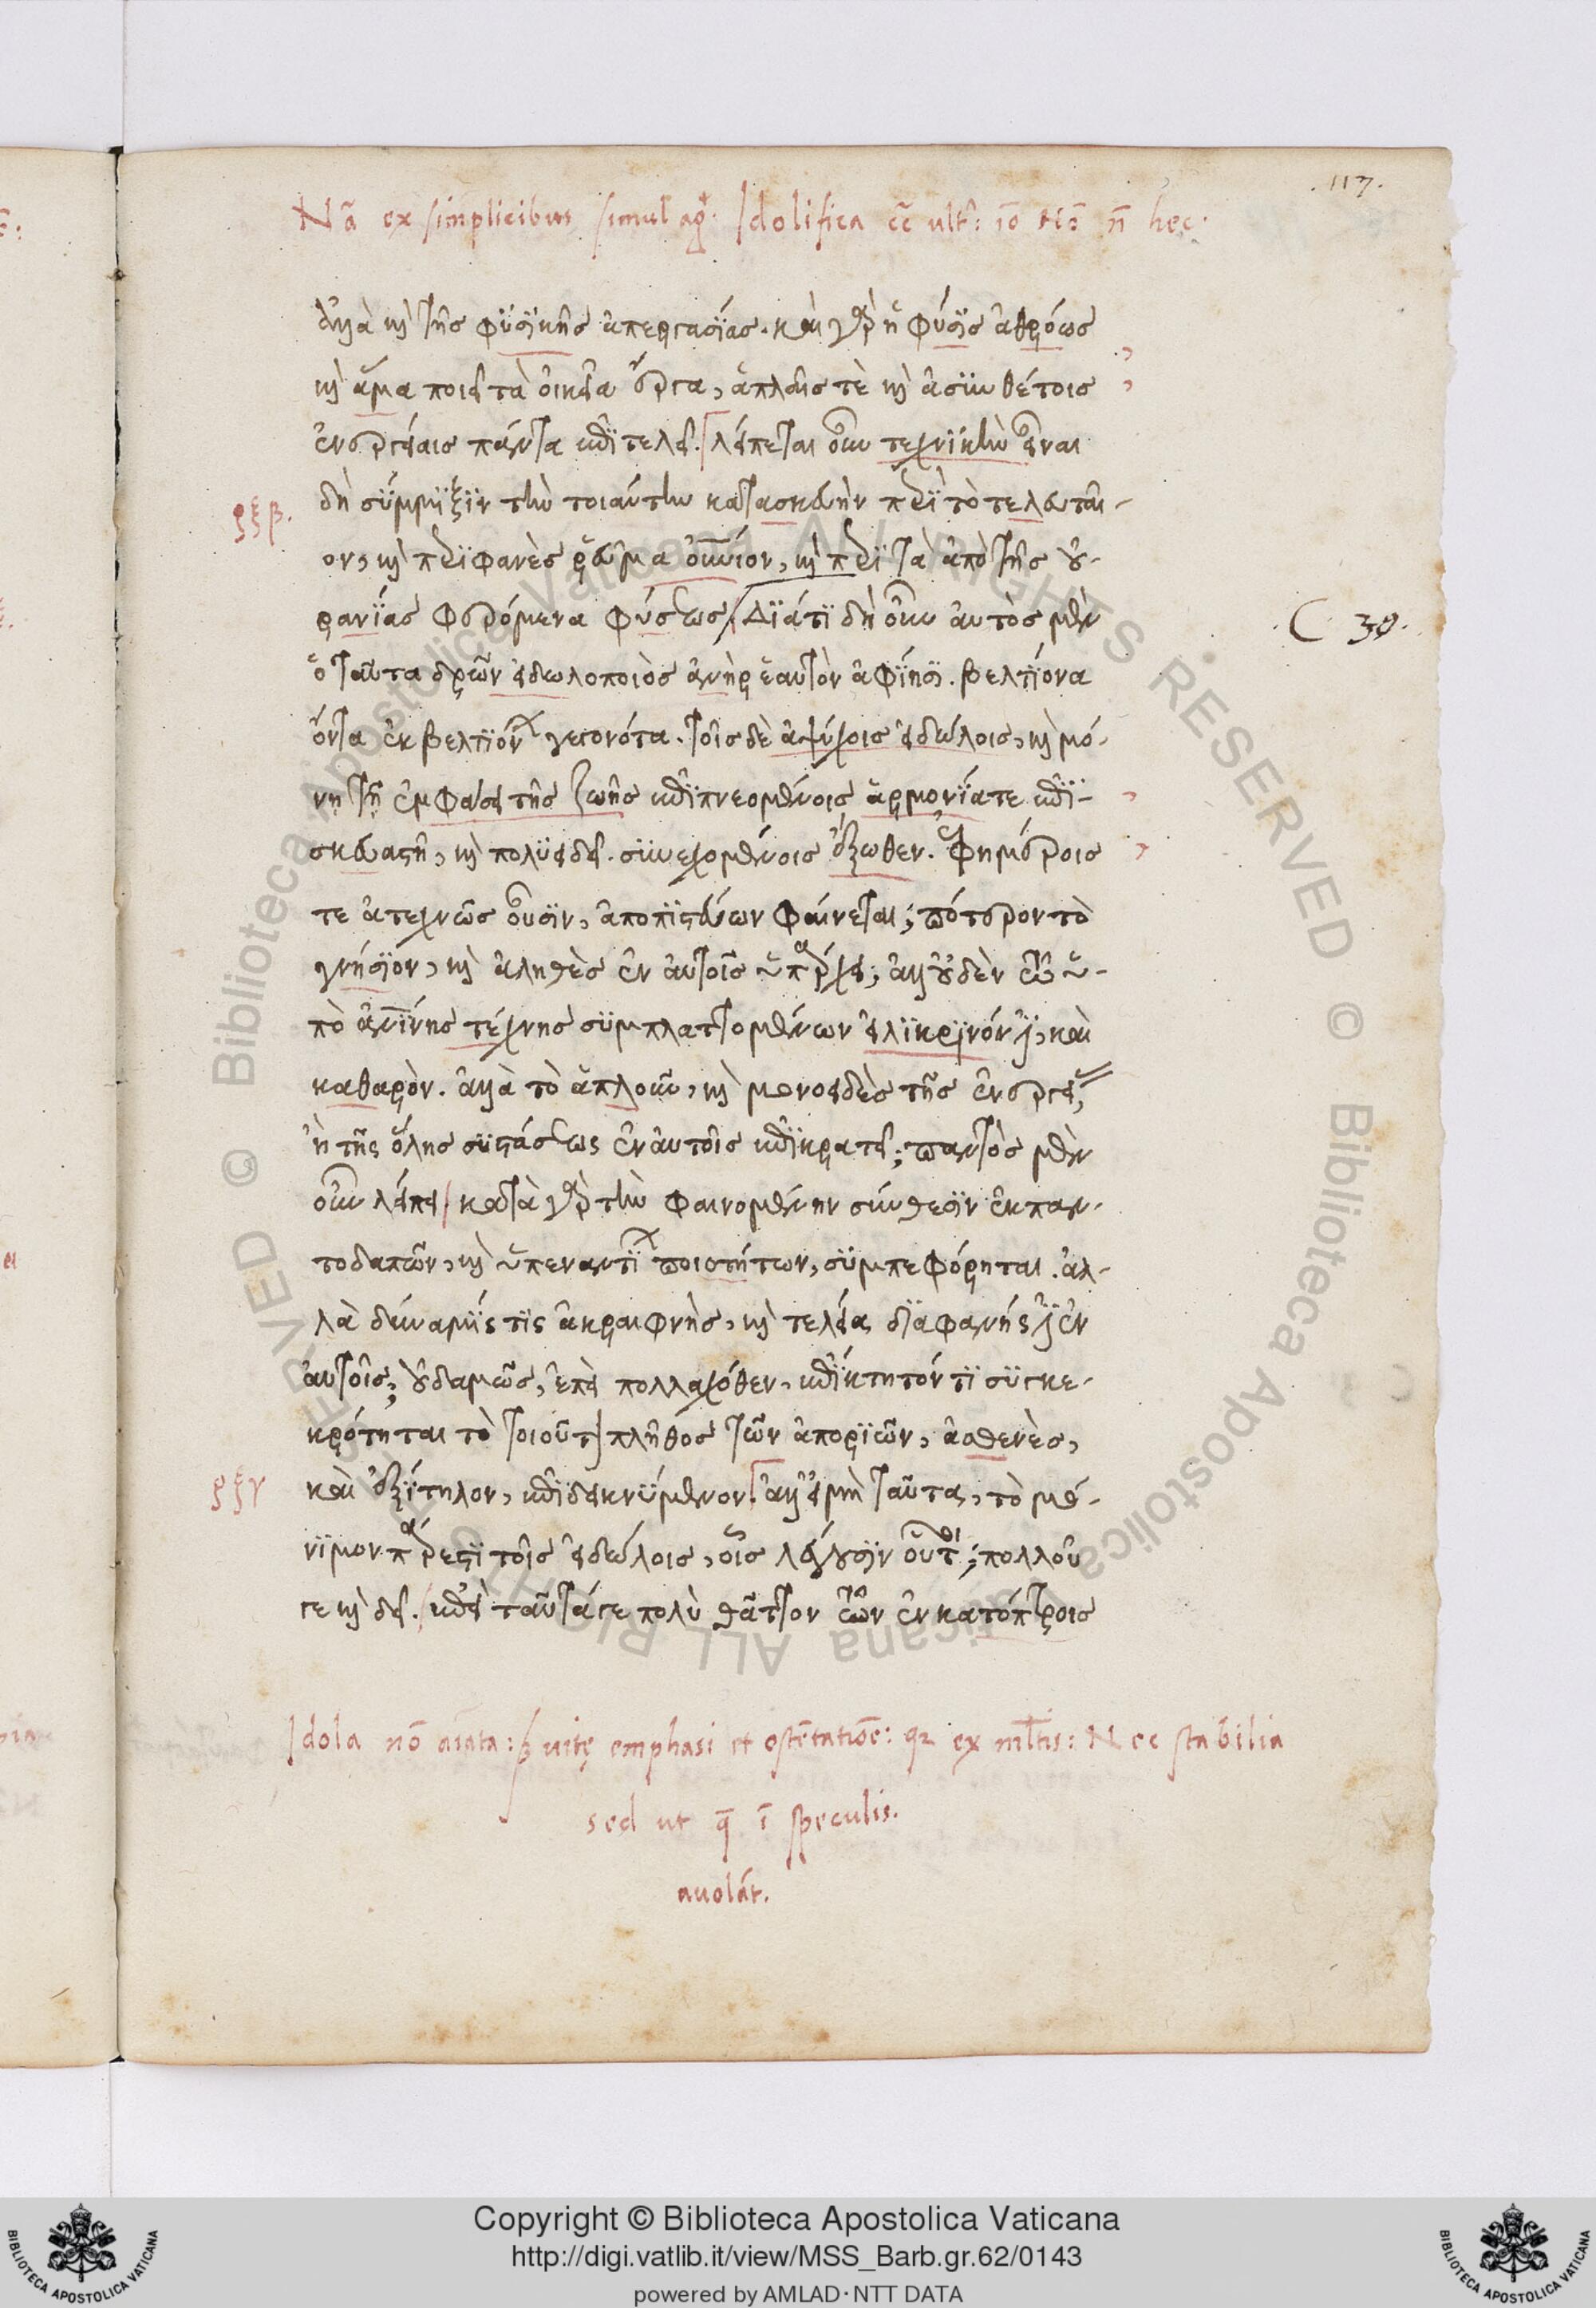 .117.
Nã ex simplicibus simul agͭ: Idolifica
ἀλλὰ καὶ τῆς φϋσϊκῆς ἀπεργασΐας. καὶ γὰρ ἡ φύσϊς ἀθρόως
καὶ ἅμα ποιεῖ τὰ οἰκεῖα ἔργα, ἁπλαῖς τὲ καὶ ἀσϋνθέτοις
ἐνεργείαις πάντα ἐπϊτελεῖ. λείπεται οὖν τεχνϊκὴν εἶναι
ρξβ.
δὴ σΰμμϊξϊν τὴν τοιαύτην κατασκευὴν περΐ τὸ τελευταῖ-
ον, καὶ περϊφανὲς ῥεῦμα οὐράνιον, καὶ περΐ τὰ ἀπὸ τῆς οὐ-
ρανΐας φερόμενα φύσεως. Δϊάτΐ δὴ οὖν αὐτὸς μὲν
. C 39.
ὁ ταῦτα δρῶν εἰδωλοποιὸς ἀνὴρ ἑαυτὸν ἀφΐησϊ. βελτΐονα
ὄντα ἐκ βελτϊόνων γεγονότα. τοῖς δὲ ἀψύχοις εἰδώλοις, καὶ μό-
νῃ τῇ ἐμφάσει τῆς ζωῆς ἐπϊπνεομένοις ἁρμονΐᾳ τε ἐπϊ-
σκευαστῇ, καὶ πολϋειδεῖ. σϋνεχομένοις ἔξωθεν. ἐφημέροις
τε ἀτεχνῶς οὖσϊν, ἀποπϊστεύων φαίνεται; πότερον τὸ
γνήσϊον, καὶ ἀληθὲς ἐν αὐτοῖς ὑπάρχει; ἀλλ' οὐδὲν τῶν ὑ-
πὸ ἀνθρωπΐνης τέχνης σϋμπλαττομένων εἰλϊκρϊνές ἐστι, καὶ
καθαρὸν. ἀλλὰ τὸ ἁπλοῦν, καὶ μονοειδὲς τῆς ἐνεργείας,
ἢ τῆς ὅλης σϋστάσεως ἐν αὐτοῖς ἐπϊκρατεῖ; παντὸς μὲν
οὖν λείπει κατὰ γὰρ τὴν φαινομένην σύνθεσϊν ἐκ παν-
τοδαπῶν, καὶ ὑπεναντΐων ποιοτήτων, σϋμπεφόρηται. ἀλ-
λὰ δύναμϊς τϊς ἀκραιφνὴς, καὶ τελεία δϊαφανής ἐστιν ἐν
αὐτοῖς; οὐδαμῶς, ἐπεὶ πολλαχόθεν, ἐπΐκτητόν τϊ σϋγκε-
κρότηται τὸ τοιοῦτον πλῆθος τῶν ἀπορϊῶν, ἀσθενὲς,
ρξγ
καὶ ἐξΐτηλον, ἐπϊδεικνϋμενον. ἀλλ' εἰ μὴ ταῦτα, τὸ μό-
νϊμον πάρεστϊ τοῖς εἰδώλοις, οἷς λέγουσϊν οὗτοι; πολλοῦ
γε καὶ δεῖ. ἐπεὶ ταῦτά γε πολὺ θᾶττον τῶν ἐν κατόπτροις
Idola nõ aĩata: sʒ uitę emphasi et ostẽtatiõe: q2 ex mltis: Nec stabilia
sed ut q̃ ĩ speculis.
auolát.
Copyright © Biblioteca Apostolica Vaticana
http://digi.vatlib.it/view/MSS_Barb.gr.62/0143
powered by AMLAD · NTT DATA